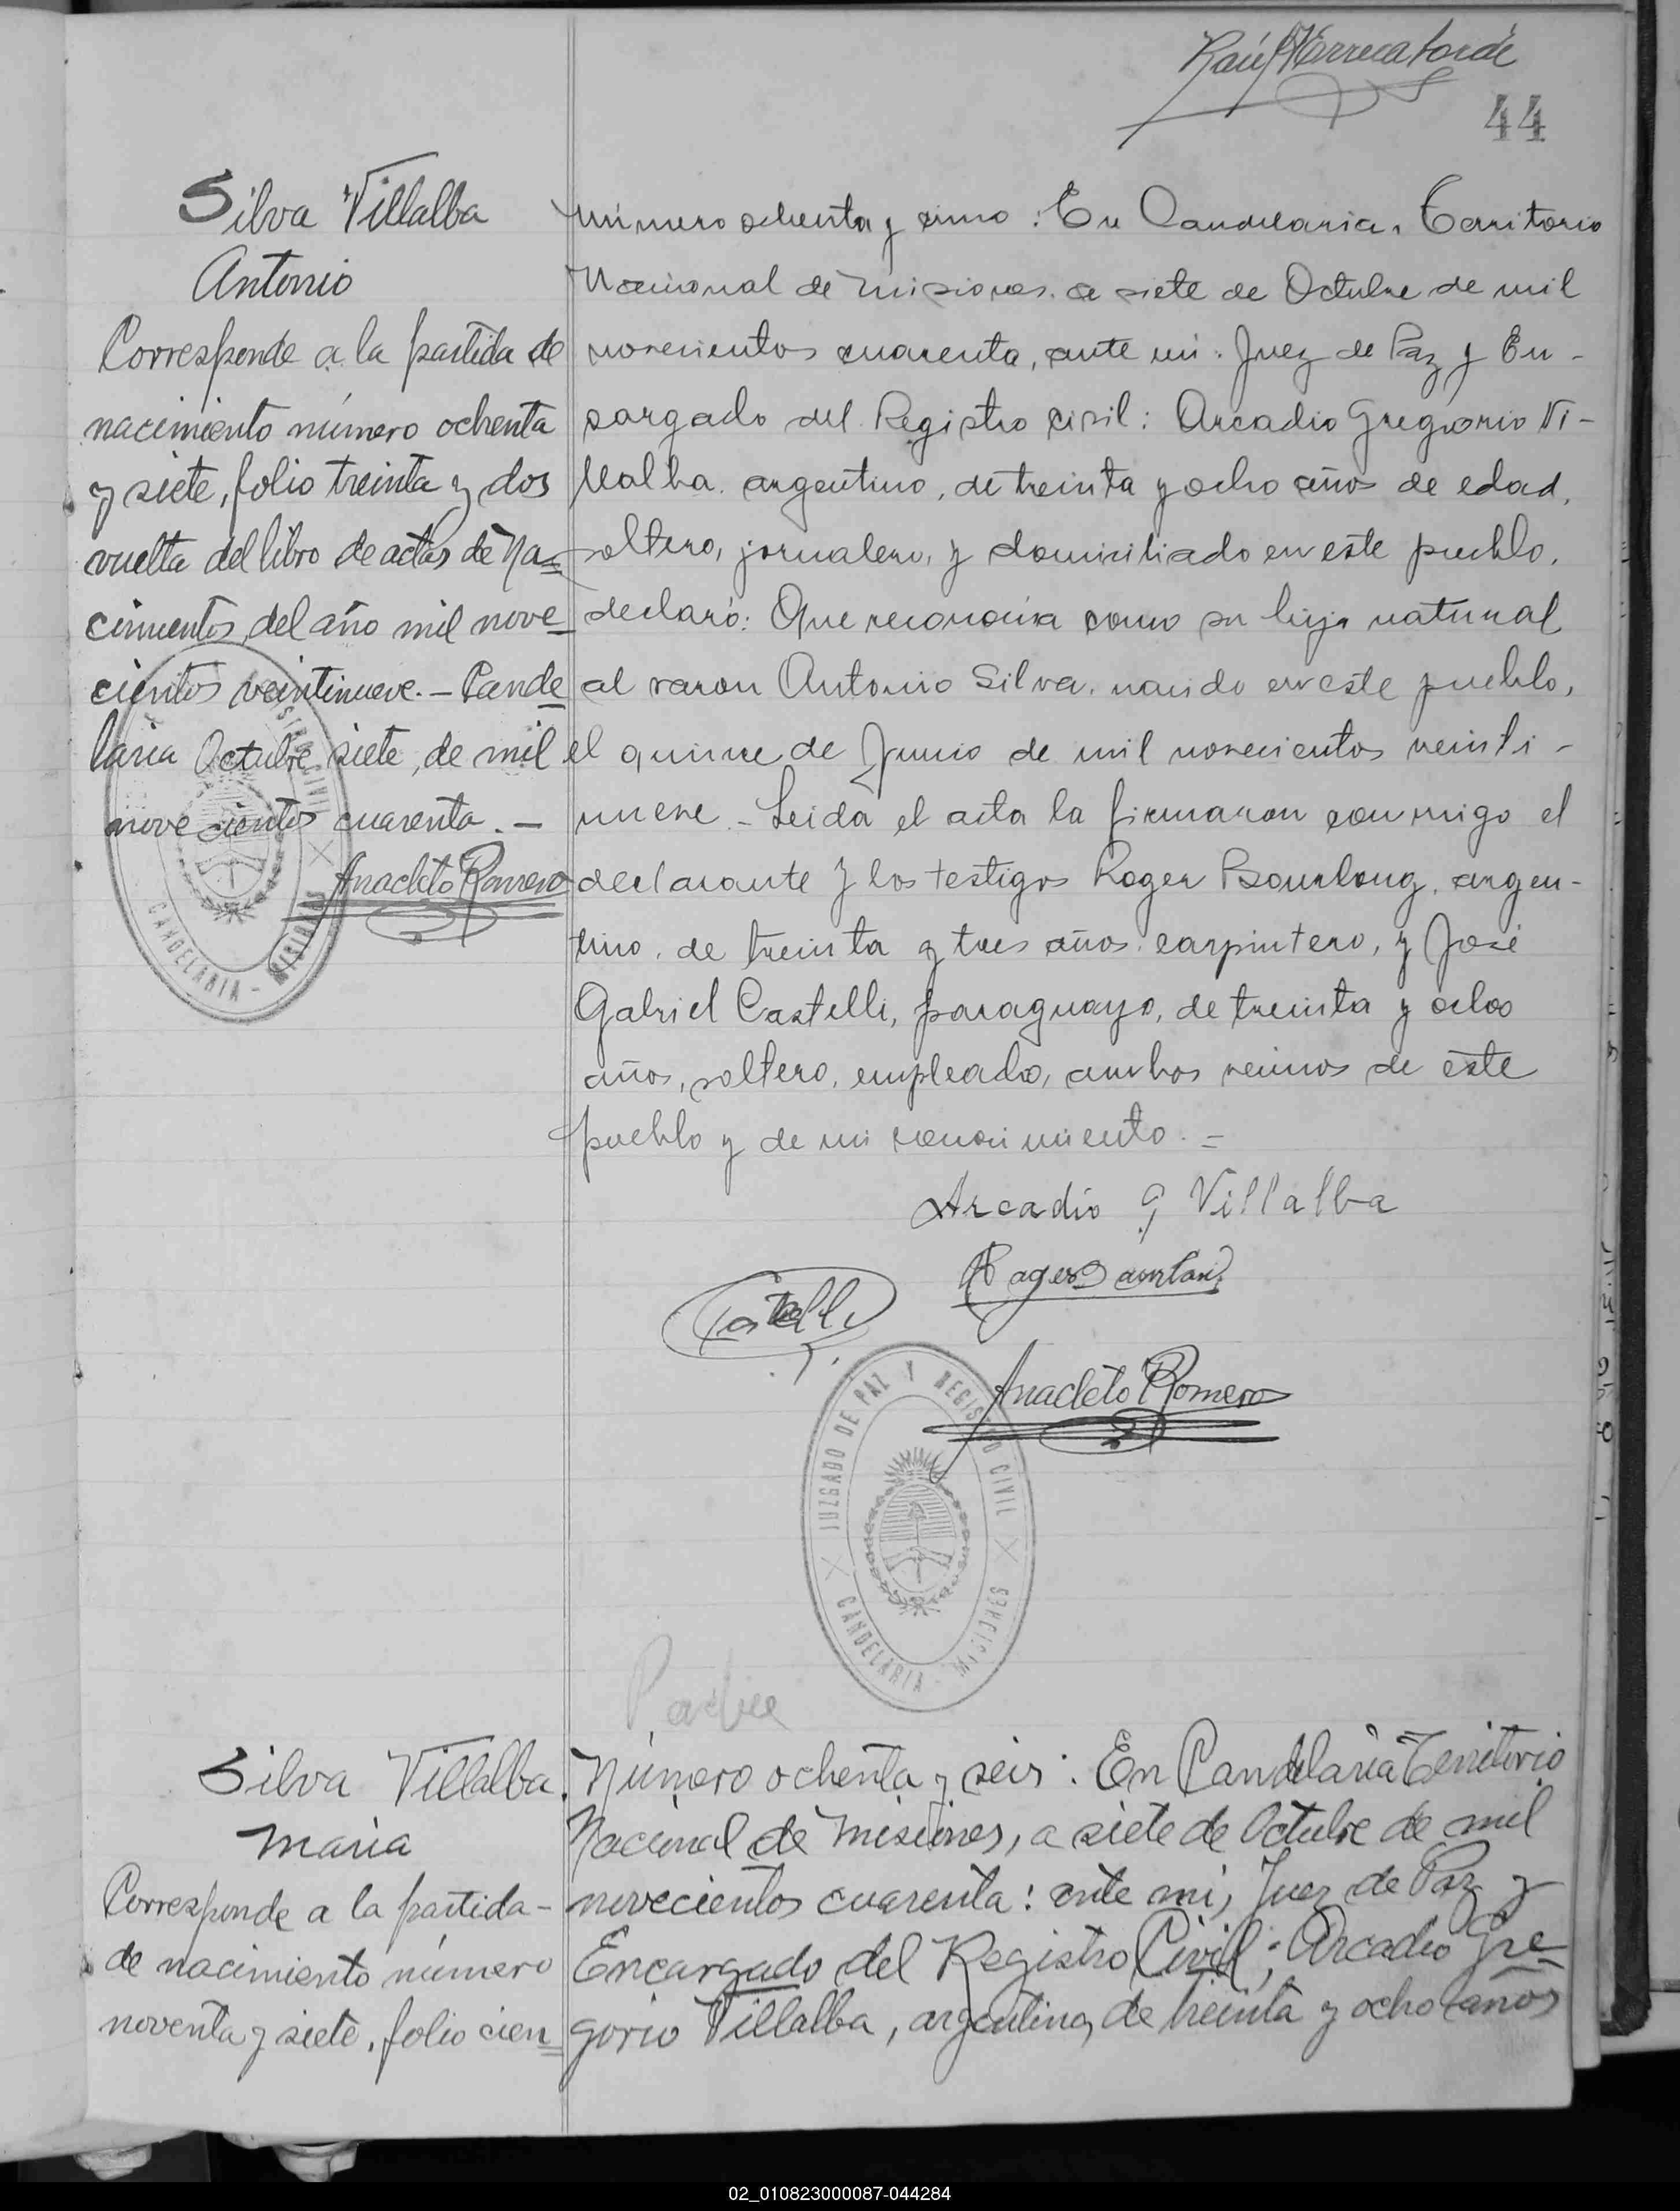 44
Silva Villalba
Antonio
Corresponde a la partida de
nacimiento número ochenta
y siete, folio treinta y dos
vuelta del libro de actas de Na=
cimientos, del año mil nove=
cientos veintinueve. - Cande
laria Octubre siete, de mil
novecientos cuarenta. -
Anacleto Romero
CANDELARIA - MISIONES
Número ochenta y cinco : En Candelaria, Territorio
Nacional de Misiones, a siete de Octubre de mil
novecientos cuarenta, ante mi, Juez de Paz y En-
cargado del Registro Civil: Arcadio Gregorio Vi-
llalba, argentino, de treinta y ocho años de edad,
soltero, jornalero, y domiciliado en este pueblo,
declaró: Que reconocia como su hijo natural
al varon Antonio Silva, nacido en este pueblo,
el quince de Junio de mil novecientos veinti-
nueve. - Leida el acta la firmaron conmigo el
declarante y los testigos Roger Bourlong, argen-
tino, de treinta y tres años, carpintero, y José
Gabriel Castelli, paraguayo, de treinta y ocho
años, soltero, empleado, ambos vecinos de este
pueblo y de mi conocimiento. =
Arcadio G Villalba
Castelli
Anacleto Romero
JUZGADO DE PAZ Y REGISTRO CIVIL
CANDELARIA - MISIONES
Padre
Silva Villalba.
Maria
Corresponde a la partida -
de nacimiento número
noventa y siete, folio cien=
Número ochenta y seis : En Candelaria Territorio
Nacional de Misiones, a siete de Octubre de mil
novecientos cuarenta: ante mi, Juez de Paz y
Encargado del Registro Civil; Arcadio Gre=
gorio Villalba, argentino, de treinta y ocho años
02_010823000087-044284